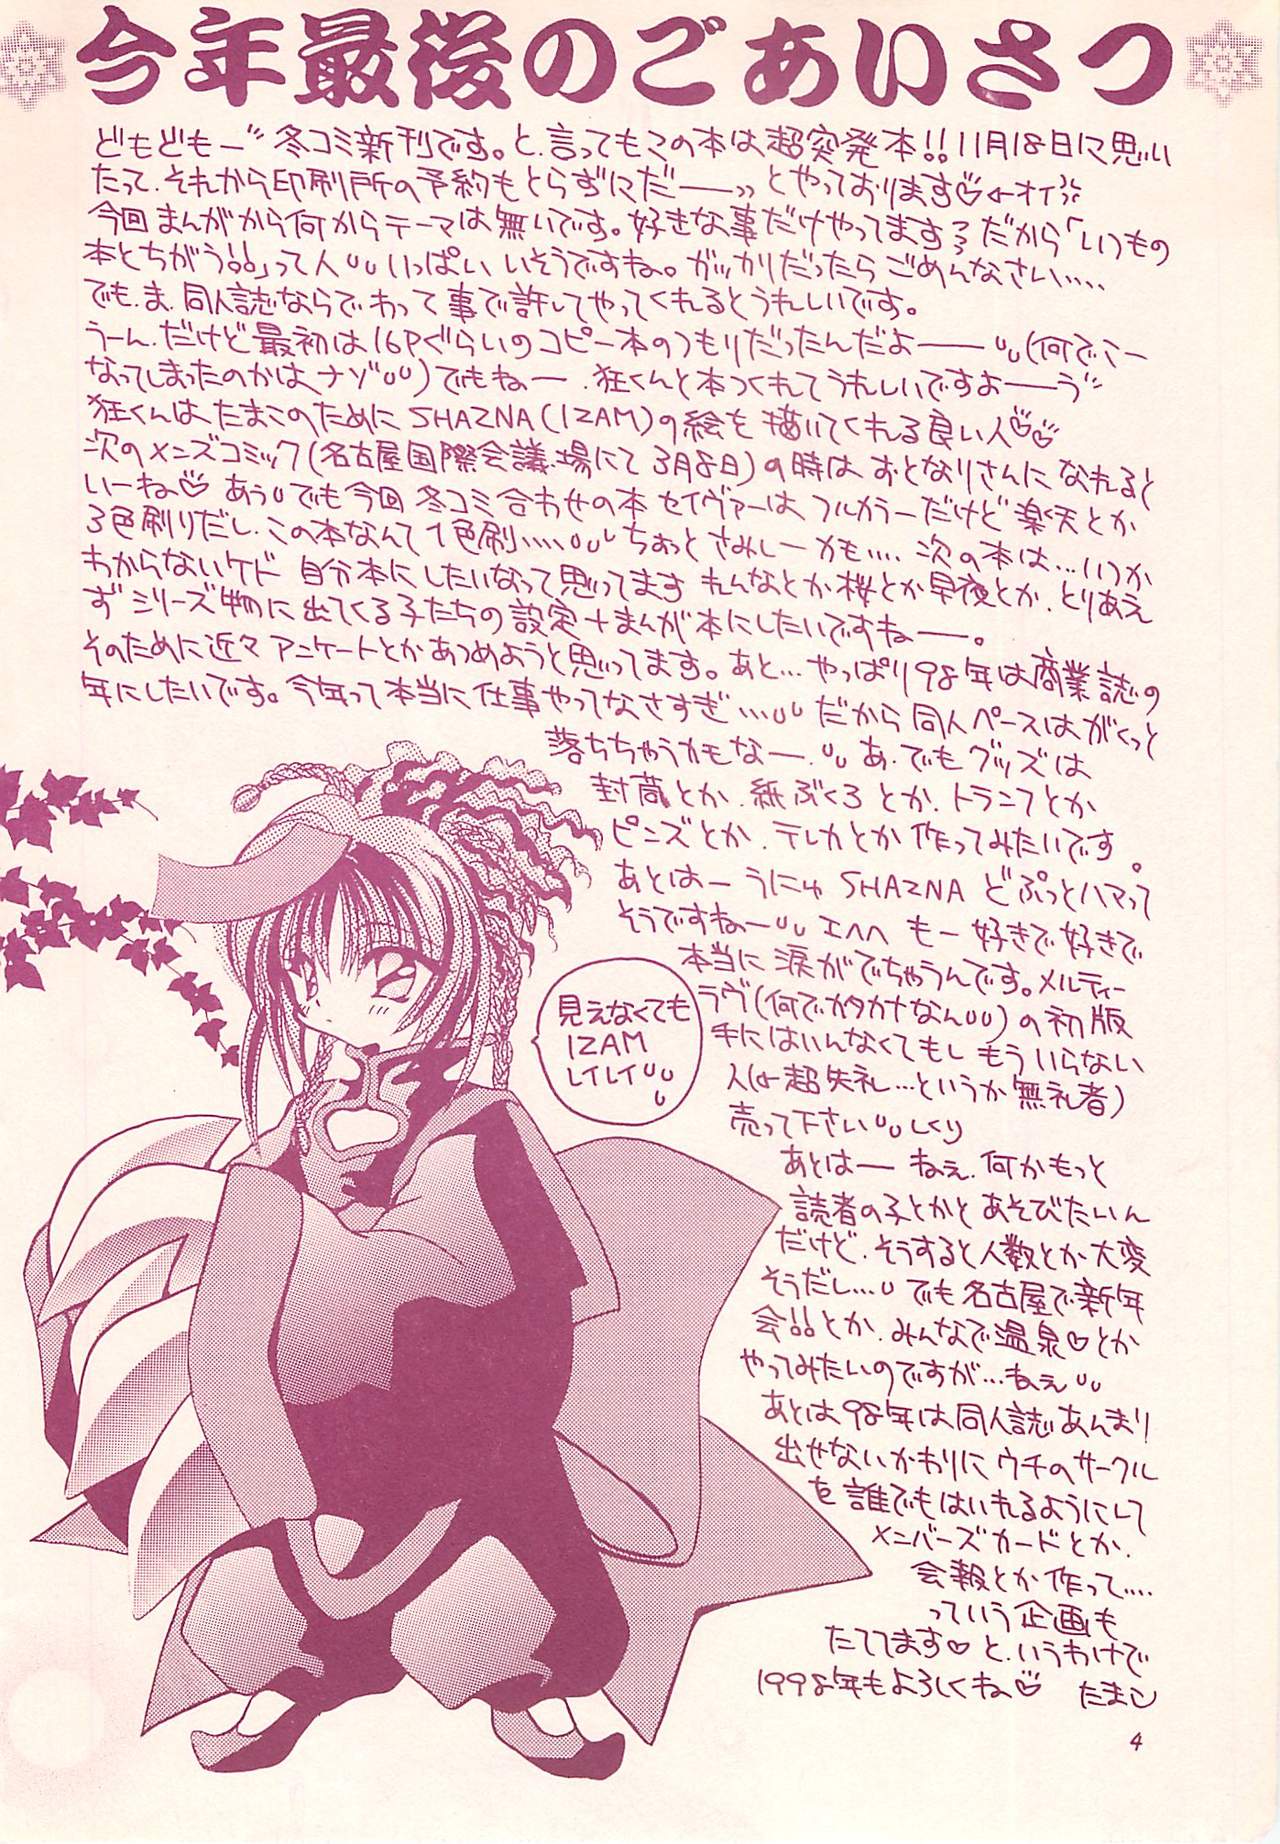 今年最後のごあいさつ
どもどもー 冬コミ新刊です。と、言ってもこの本は超突発本!! 11月18日に思い
たって、それから印刷所の予約もとらずにだーーっっとやっております♡←オイ
今回まんがから何からテーマは無いです。好きな事だけやってます だから「いつもの
本とちがう!!」って人いっぱいいそうですね。ガッカリだったらごめんなさい....
でも、ま、同人誌ならでわって事で許してやってくれるとうれしいです。
うーん、だけど最初は16Pぐらいのコピー本のつもりだったんだよーーー(何でこー
なってしまったのかは、ナゾ)でもねー、狂くんと本つくれてうれしいですよーーう
狂くんはたまこのためにSHAZNA(IZAM)の絵を描いてくれる良い人♡♡
次のメンズコミック(名古屋国際会議場にて3月8日)の時はおとなりさんになれると
いーね♡ あぅでも今回冬コミ合わせの本セイヴァーはフルカラーだけど楽天とか
3色刷りだし、この本なんて1色刷.....ちょっとさみしーかも.... 次の本は...いつか
わからないケド 自分本にしたいなって思ってます れんなとか桜とか早夜とか、とりあえ
ずシリーズ物に出てくる子たちの設定+まんが本にしたいですねーー。
そのために近々アンケートとかあつめようと思ってます。あと...やっぱり98年は商業誌の
年にしたいです。今年って本当に仕事やってなさすぎ....だから同人ペースはがくっと
落ちちゃうカモなー、あ、でもグッズは
封筒とか、紙ぶくろとか、トランプとか
ピンズとか、テレカとか作ってみたいです。
あとはー うにゅ SHAZNA どぷっとハマって
そうですねー エヘヘ もー好きで好きで
本当に涙がでちゃうんです。メルティー
ラヴ(何でカタカナなん)の初版
手にはいんなくてもしもういらない
人(←超失礼...というか無礼者)
売って下さい しくり
あとはー ねぇ、何かもっと
読者の子とかとあそびたいん
だけど、そうすると人数とか大変
そうだし... でも名古屋で新年
会!!とか、みんなで温泉♡とか
やってみたいのですが...ねぇ
あとは98年は同人誌あんまり
出せないかわりにウチのサークル
を誰でもはいれるようにして
メンバーズカードとか、
会報とか作って.....
っていう企画も
たててます♡と、いうわけで
1998年もよろしくね♡ たまこ
見えなくても
IZAM
レイレイ
4